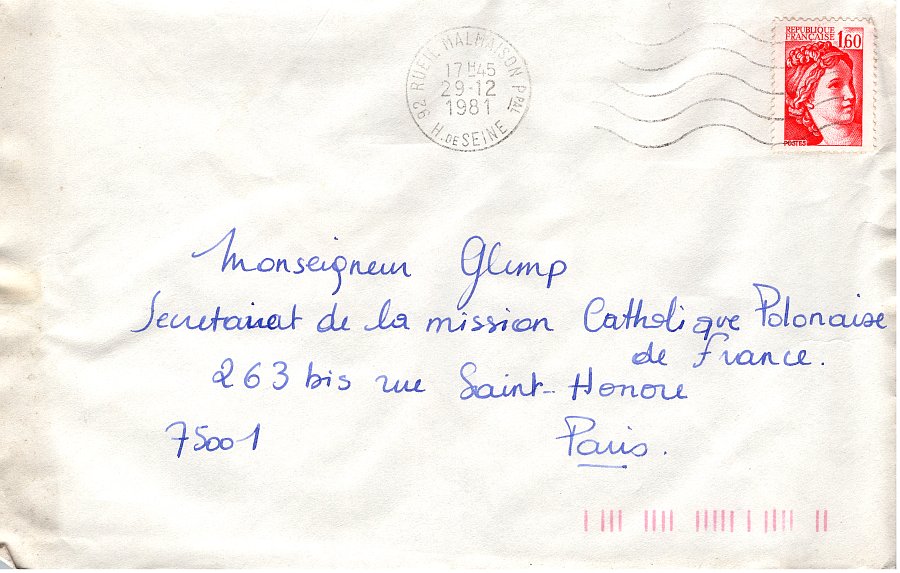 RUEIL MALMAISON PPAL
17H45
29-12
1981
92 H. DE SEINE
REPUBLIQUE
FRANCAISE 1,60
POSTES
Monseigneur Glemp
Secretariat de la mission Catholique Polonaise
de France.
263 bis rue Saint-Honore
75001 Paris.